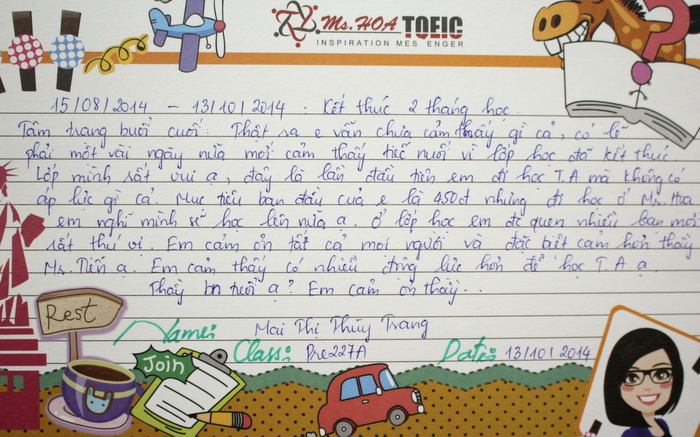 Ms. HOA TOEIC
INSPIRATION MES ENGER
?
15/08/2014 - 13/10/2014. Kết thúc 2 tháng học.
Tâm trạng buổi cuối: Thật ra e vẫn chưa cảm thấy gì cả, có lẽ
phải một vài ngày nữa mới cảm thấy tiếc nuối vì lớp học đã kết thúc.
Lớp mình rất vui ạ, đây là lần đầu tiên em đi học T.A mà không có
áp lực gì cả. Mục tiêu ban đầu của e là 450đ nhưng đi học ở Ms. Hoa
em nghĩ mình sẽ học lên nữa ạ. Ở lớp học em đc quen nhiều bạn mới
rất thú vị. Em cảm ơn tất cả mọi người và đặc biệt cảm hơn thầy
Ms. Tiến ạ. Em cảm thấy có nhiều động lực hơn để học T.A ạ.
Thầy bn tuổi ạ? Em cảm ơn thầy..
Rest
Name: Mai Thị Thùy Trang
Join
Class: Pre227A Date: 13/10/2014